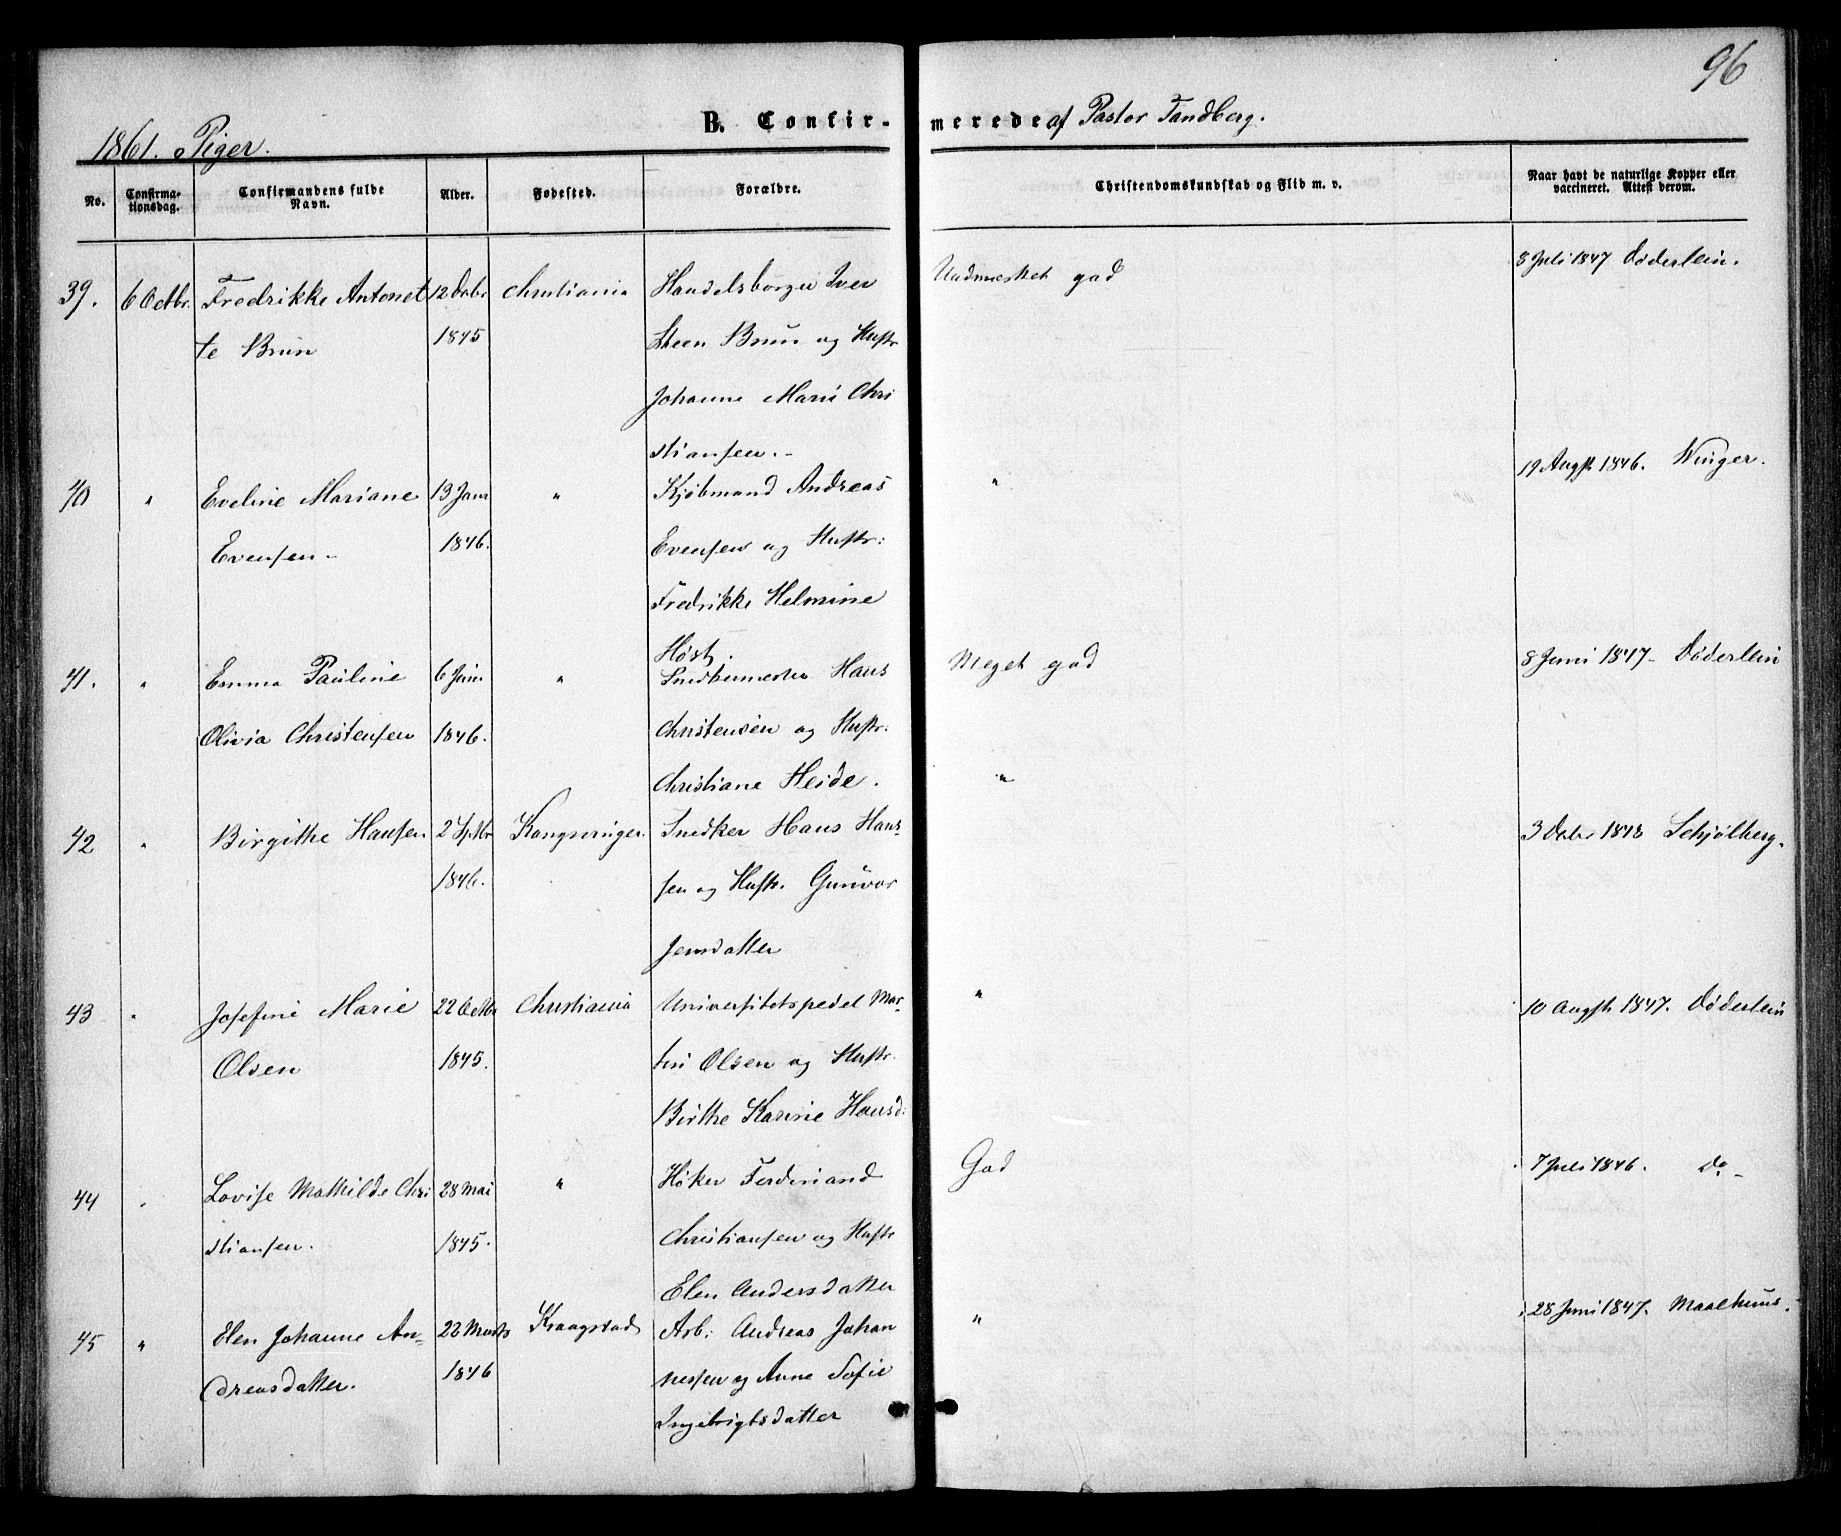 96
B. Confir- merede af Pastor Tandberg.
1861. Piger.
No. Confirma-tionsdag. Confirmandens fulde Navn. Alder. Fødested. Forældre. Christendomskundskab og Flid m. v. Naar havt de naturlige Kopper eller vaccineret. Attest derom.
39. 6 Octbr. Fredrikke Antonet 12 Decbr Christiania Handelsborger Iver Udmærket god 8 Juli 1847 Døderlein.
te Brun 1845 Steen Brun og Hustr
Johanne Marie Chri
stiansen.-
40 " Eveline Mariane 13 Janr " Kjøbmand Andreas " 19 Augst 1846. Winger.
Evensen- 1846. Evensen og Hustr:
Fredrikke Helmine
Høst.
41. " Emma Pauline 6 Jun. " Snedkermester Hans Meget god 8 Juni 1847- Døderlein
Olivia Christensen 1846. Christensen og Hustr:
Christiane Heide.
42 " Birgithe Hansen 2 Sptbr Kongsvinger. Snedker Hans Han- " 3 Decbr 1848 Schjølberg.
1846. sen og Hustr. Gunvor
Jensdatter
43 " Josefine Marie 22 Octbr Christiania Universitetspedel Mar- " 10 Augst 1847. Døderlein
Olsen 1845. tin Olsen og Hustr.
Birthe Karine Hansd:
44 " Lovise Mathilde Chri 28 Mai " Høker Ferdinand God 7 Juli 1846. Do-
stiansen. 1845. Christiansen og Hustr
Elen Andersdatter
45 " Elen Johanne An- 22 Marts Kraagstad Arb: Andreas Johan " 28 Juni 1847. Maalhuus.
dreasdatter. 1846 nessen og Anne Sofie
Ingebrigtsdatter